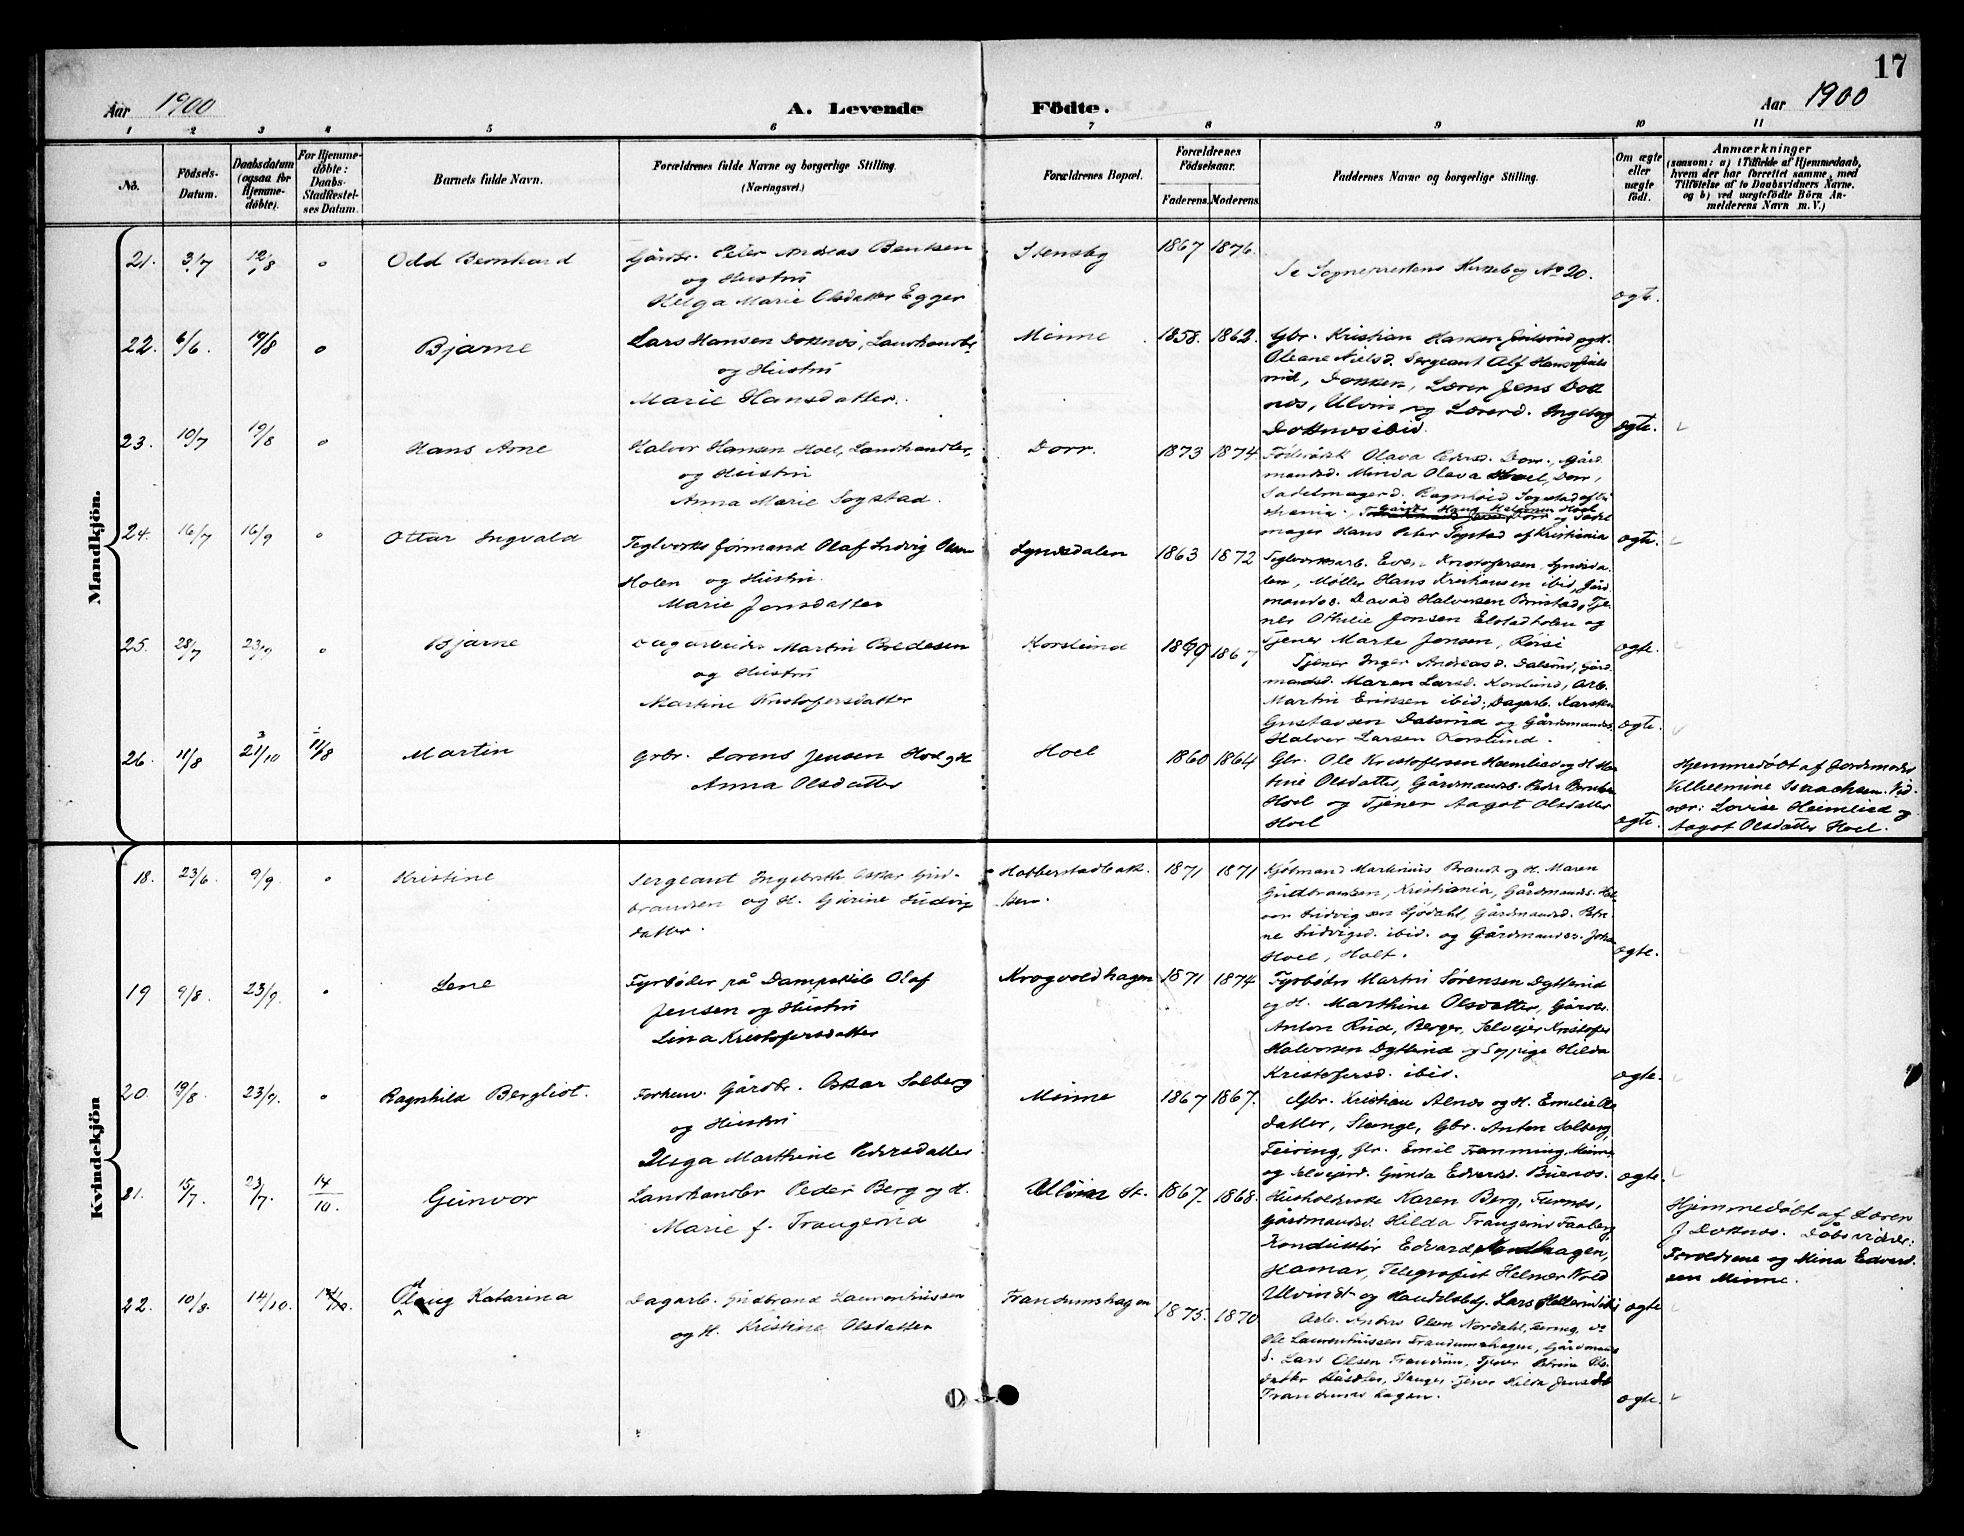 17
Aar 1900
A. Levende
Födte.
Aar 1900
1 2 3 4 5 6 7 8 9 10 11
No.
Födsels-
Datum.
Daabsdatum
(ogsaa for
Hjemme-
döbte).
For Hjemme-
döbte:
Daabs-
Stadfæstel-
ses Datum.
Barnets fulde Navn.
Forældrenes fulde Navne og borgerlige Stilling.
(Næringsvei.)
Forældrenes Bopæl.
Forældrenes
Födselsaar.
Faderens.
Moderens.
Faddernes Navne og borgerlige Stilling.
Om ægte
eller
uægte
födt.
Anmærkninger
(saasom: a) i Tilfælde af Hjemmedaab,
hvem der har forrettet samme, med
Tilföielse af to Daabsvidners Navne.
og b) ved uægtefödte Börn An-
melderens Navn m. V.)
Mandkjön.
21. 3/7 12/8 o Odd Bernhard
Gårdbr. Peter Andreas Bentsen
og Hustru
Helga Marie Olsdatter Egger
Stensby 1867 1876.
Se Sogneprestens Kirkebog No 20.
ægte.
22. 6/6. 19/8 o Bjarne
Lars Hansen Doknæs, Landhandler
og Hustru
Marie Hansdatter.
Minne 1858. 1862.
Gbr. Kristian Hansen
Oleane Nielsd. Sergeant Alf Hansen
Dokken, Lærer Jens Dok
næs, Ulvin og Lærerd. Ingeborg
Doknæs ibid.
ægte.
23. 10/7 19/8 o Hans Arne
Halvor Hansen Hoel, Landhandler,
og Hustru
Anna Marie Sogstad.
Dorr. 1873 1874
Olava Pedersd. Dorr., Gård
mandsd. Minda Olava Hoel, Dorr,
Sadelmagerd. Ragnhild Sogstad af Kri
stiania,
mager Hans Peter Sogstad af Kristiania
ægte.
24. 16/7 16/9 o Ottar Ingvald
Teglverks formand Olaf Ludvig Olsen
Holen og Hustru
Marie Jonsdatter
Lyndsdalen 1863 1872
Teglverksarb. Even Kristofersen, Lyndsda
len, Møller Hans Kristiansen ibid, Gård
mandss. David Halvorsen Brustad, Tje
ner Othilie Jonsen Elstadholen og
Tjener Marte Jensen, Røisi
ægte.
25. 28/7 23/9 o Bjarne
Dagarbeider Martin Bredesen
og Hustru
Martine Kristofersdatter
Korslund 1869 1867
Tjener Inger Andreasd. Dalsrud, Gård
mandsd. Maren Larsd. Korslund, Arb.
Martin Eriksen ibid, Dagarb. Karsten
Gustavsen Dalsrud og Gårdmandss.
Halvor Larsen Korslund.
ægte.
26. 11/8 21/10 11/8 Martin
Grbr. Lorens Jensen Hoel og H.
Anna Olsdatter
Hoel 1860 1864
Gbr. Ole Kristofersen Heimlied og H.
Olsdatter, Gårdmandss. Peder
Hoel og Tjener Aagot Olsdatter
Hoel
ægte.
Hjemmedøbt af Jordmoder
Vilhelmine Isaachsen. Vid-
ner: Lovise Heimlied og
Aagot Olsdatter Hoel.
Kvindekjön
18. 23/6 9/9. o Kristine
Sergeant Ingebreth Oskar Gud-
brandsen og H. Gurine Ludvigs
datter.
Habberstadbak-
ken. 1871 1871
Kjøbmand Martinius Brandt og H. Maren
Gudbrandsen, Kristiania, Gårdmandss.
Ludvigsen Sjødahl, Gårdmandsd. Petri-
ne Ludvigsd. ibid. og Gårdmandss. Johan
Hoel, Holt.
ægte.
19 9/8. 23/9. . Lene
Fyrbøder på Dampskib Olaf
Jensen og Hustru
Lina Kristofersdatter
Krogvoldhagen 1871 1874
Fyrbøder Martin Sørensen Dytterud
og H. Marthine Olsdatter, Gårdbr.
Anton Ruud, Berger, Selveier Kristofer
Halvorsen Dytterud og Sypige Hilda
Kristofersd. ibid.
ægte.
20. 19/8. 23/9. o Ragnhild Bergliot.
Forhenv. Gårdbr. Oskar Solberg
og Hustru
Olga Marthine Pedersdatter
Minne 1867 1867.
Gbr. Kristian Alnæs og H. Emilie Ols
datter, Stange, Gbr. Anton Solberg,
Feiring, Gbr. Emil Framming, Minne
og Selveierd. Gunda Edvarsd. Buenæs.
ægte.
21. 15/7. 23/7. 14/10. Gunvor
Landhandler Peder Berg og H.
Marie f. Traugerud
Ulvin St. 1867. 1868.
Husholderske Karen Berg, Furnes,
Gårdmandsd. Hilda Traugerud Faaberg,
Konduktør Edvard Nordhagen,
Hamar, Telegrafist Helmer Vold
Ulvin St. og Handelsbetj. Lars
ægte
Hjemmedøbt af Læreren
J Doknæs. Dåbsvidner:
Forældrene og Mina Edvard
sen Minne.
22. 10/8. 14/10. Olaug Katarina
Dagarb. Gudbrand Laurentiussen
og H. Kristine Olsdatter
Frandumshagen 1875. 1870
Arb. Anders Olsen Nordahl, Feiring,
Ole Laurentiussen Frandumshagen, Gårdmand
s. Lars Olsen Frandum, Tjener Petrine Ols
datter Stange. Tjener Hilda
Frandumshagen.
ægte.